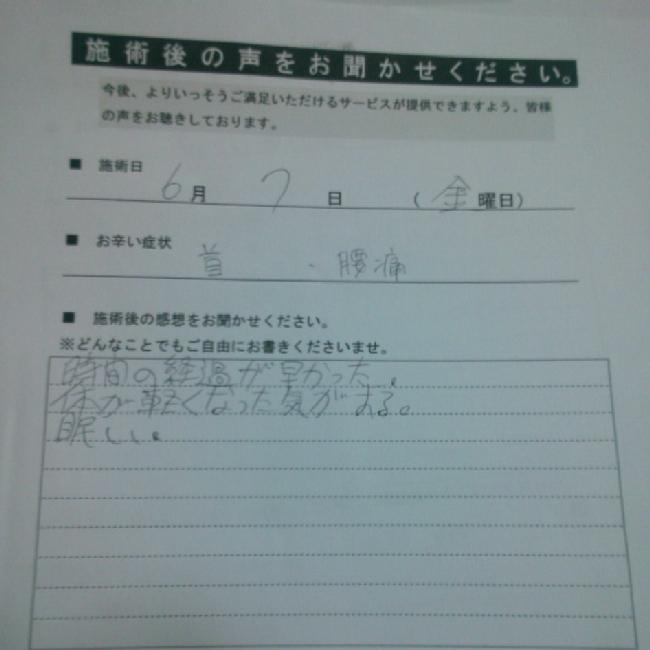 施術後の声をお聞かせください。
今後、よりいっそうご満足いただけるサービスが提供できますよう、皆様
の声をお聴きしております。
■ 施術日
6月 7日 (金曜日)
■ お辛い症状
首 ・ 腰痛
■ 施術後の感想をお聞かせください。
※どんなことでもご自由にお書きくださいませ。
時間の経過が早かった。
体が軽くなった気がする。
眠しい。